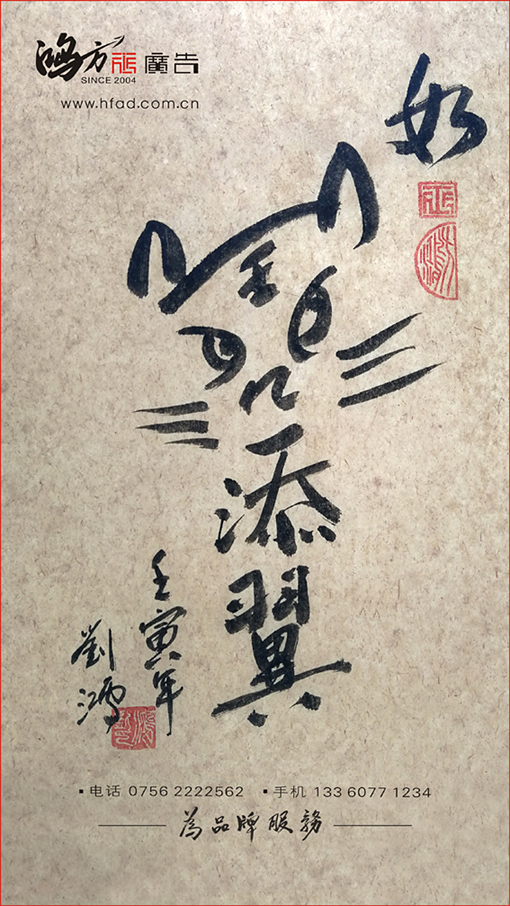 鸿方張廣告
SINCE 2004
www.hfad.com.cn
如
虎
添翼
壬寅年
劉鴻
电话 0756 2222562 手机 133 6077 1234
為品牌服務